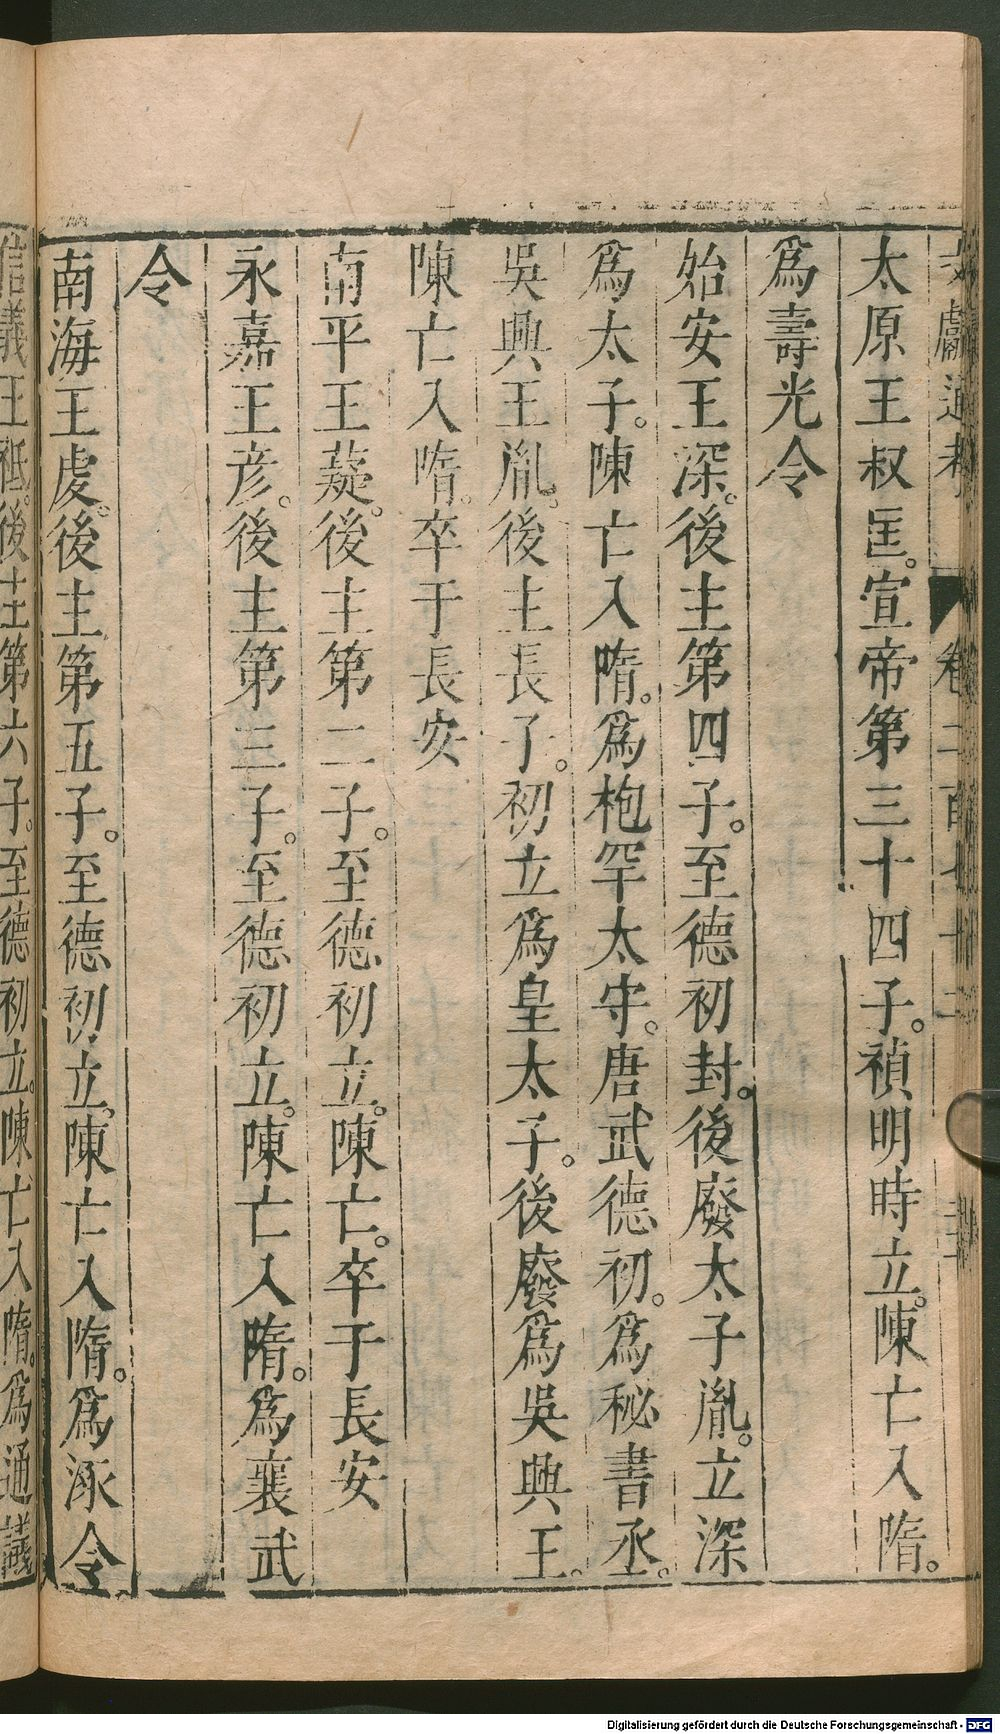 文獻通考 卷二百七十二
太原王叔匡。宣帝第三十四子。禎明時立。陳亡入隋。
爲壽光令
始安王深。後主第四子。至德初封。後廢太子胤。立深
爲太子。陳亡入隋。爲枹罕太守。唐武德初。爲秘書丞。
吳興王胤。後主長子。初立爲皇太子。後廢爲吳興王。
陳亡入隋。卒于長安
南平王薿。後主第二子。至德初立。陳亡。卒于長安
永嘉王彦。後主第三子。至德初立。陳亡入隋。爲襄武
令
南海王虔。後主第五子。至德初立。陳亡入隋。爲涿令
信義王祗。後主第六子。至德初立。陳亡入隋。爲通議
Digitalisierung gefördert durch die Deutsche Forschungsgemeinschaft - DFG